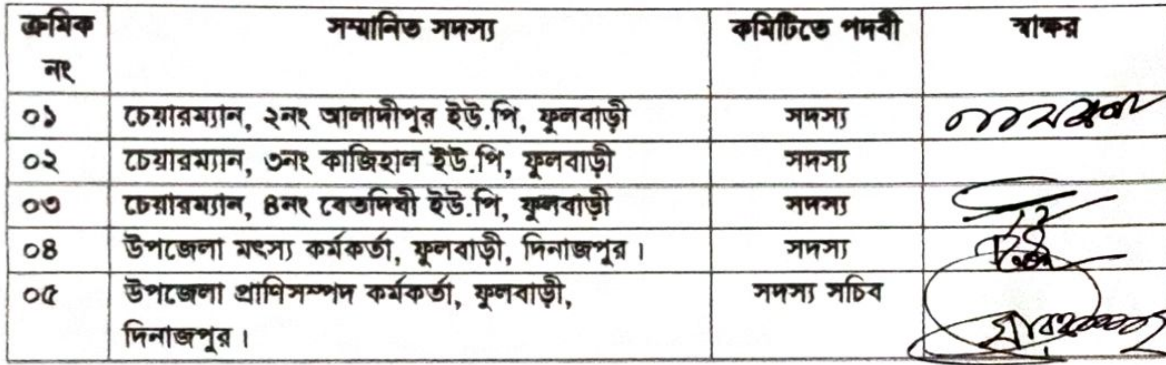 ক্রমিক নং সম্মানিত সদস্য কমিটিতে পদবী স্বাক্ষর
০১ চেয়ারম্যান, ২নং আলাদীপুর ইউ.পি, ফুলবাড়ী সদস্য
০২ চেয়ারম্যান, ৩নং কাজিহাল ইউ.পি, ফুলবাড়ী সদস্য
০৩ চেয়ারম্যান, ৪নং বেতদিঘী ইউ.পি, ফুলবাড়ী সদস্য
০৪ উপজেলা মৎস্য কর্মকর্তা, ফুলবাড়ী, দিনাজপুর। সদস্য
০৫ উপজেলা প্রাণিসম্পদ কর্মকর্তা, ফুলবাড়ী, সদস্য সচিব
দিনাজপুর।